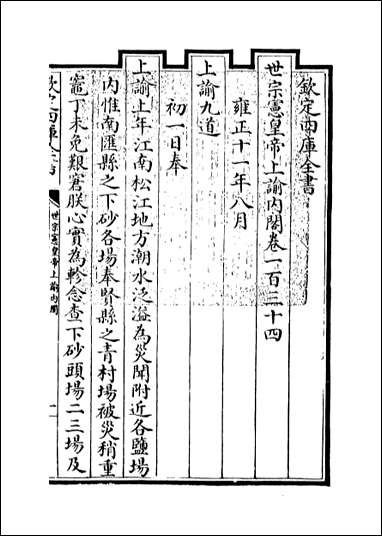 欽定四庫全書
世宗憲皇帝上諭內閣卷一百三十四
雍正十一年八月
上諭九道
初一日奉
上諭上年江南松江地方潮水泛溢為災聞附近各鹽場
內惟南匯縣之下砂各場奉賢縣之青村場被災稍重
竈丁未免艱窘朕心實為軫念查下砂頭場二三場及
欽定四庫全書
世宗憲皇帝上諭內閣
一